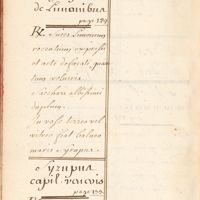 de Limonibus
page 139
℞ Succi Limonum
recentium, expressi
et arte defaecati, quan
tum volueris
Sacchari albissimi
duplum
In vase terreo vel
vitreo fiat balneo
mariae Syrupus
Syrupus
capil. veneris
page 139